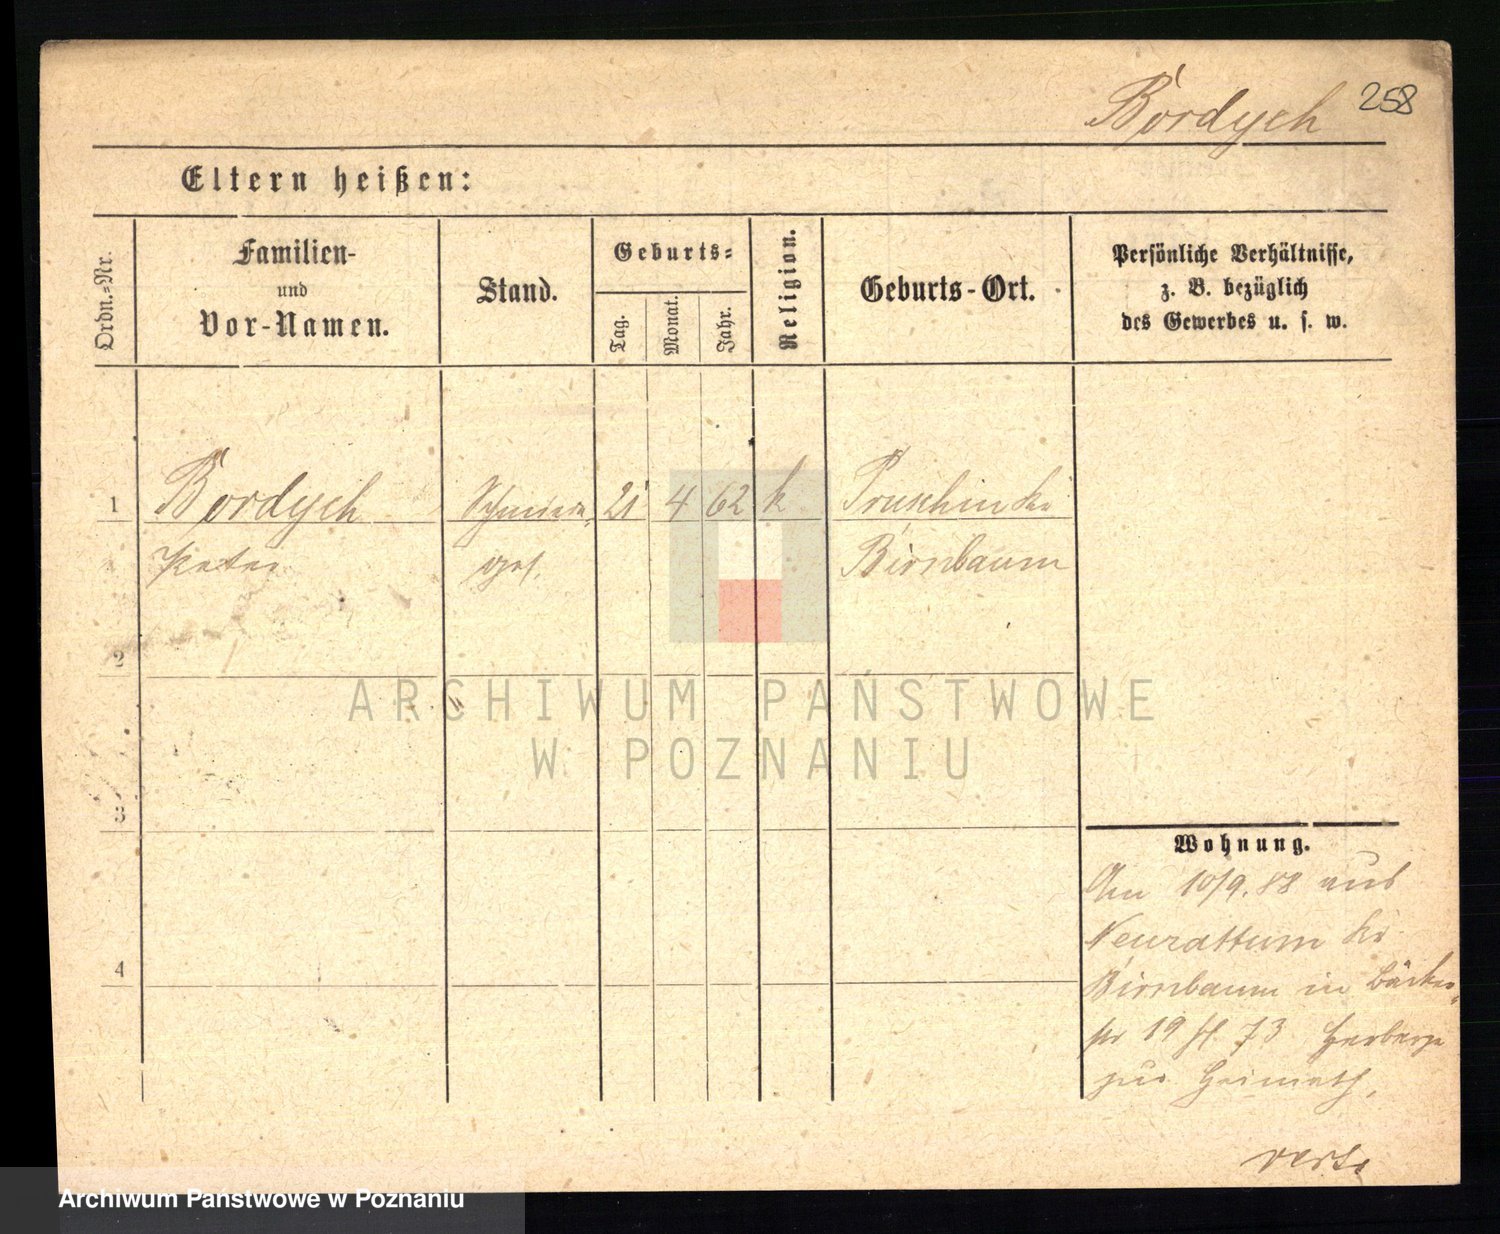 Bordych 258
Eltern heißen:
Ordn.-Nr.
Familien-
und
Vor-Namen.
Stand.
Geburts-
Tag.
Monat.
Jahr.
Religion.
Geburts-Ort.
Persönliche Verhältnisse,
z. B. bezüglich
des Gewerbes u. s. w.
1 Bordych 21 4 62 k
Peter Birnbaum
2
3
4
Wohnung.
Am 10/9. 88 aus
Neurattum Kr
Birnbaum in Bäcker-
str 19 bei 73 Herberge
zur Heimath,
verte
ARCHIWUM PAŃSTWOWE
W POZNANIU
Archiwum Państwowe w Poznaniu